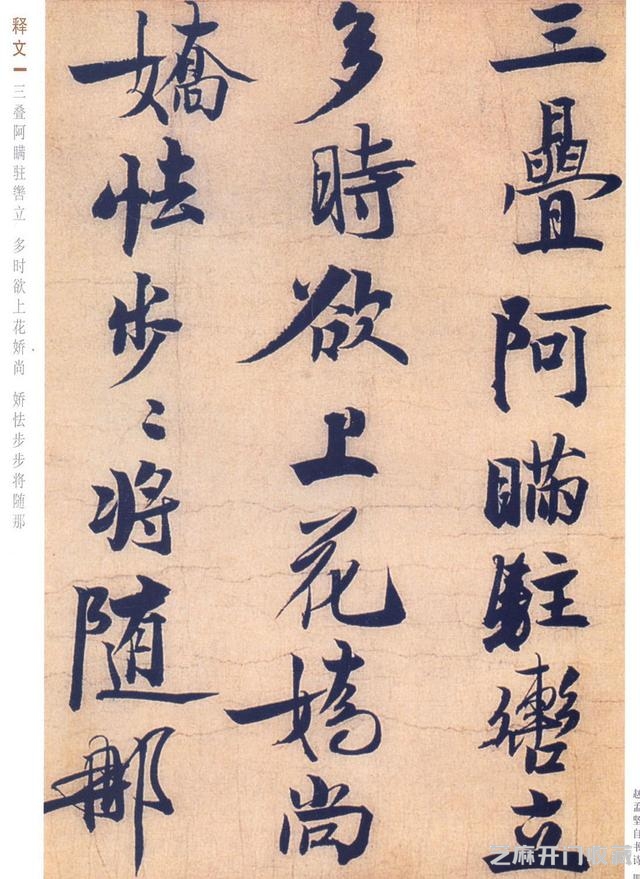 三疊阿瞞駐轡立
多時欲上花嬌尚
嬌怯步〻將隨那
释文
三叠阿瞒驻辔立 多时欲上花娇尚 娇怯步步将随那
赵孟坚自书诗
芝麻开门收藏